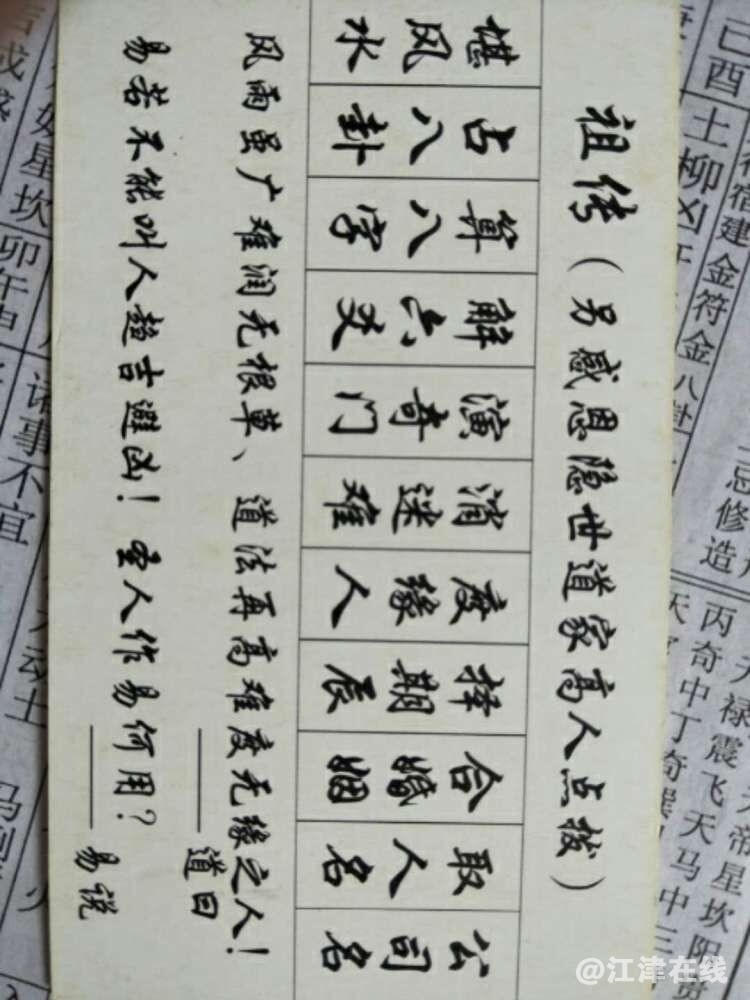 祖传（另感恩隐世道家高人点拨）
堪风水
占八卦
算八字
解六爻
演奇门
消迷难
度缘人
择期辰
合婚姻
取人名
公司名
风雨虽广难润无根草、道法再高难度无缘之人！
——道曰
易若不能叫人趋吉避凶！圣人作易何用？
——易说
己酉土柳凶
宿建金符金八卦
忌修造
帝星坎阳
禄震飞天马中三
丙奇中丁奇巽
星坎
卯午申
诸事不宜
动土
@江津在线